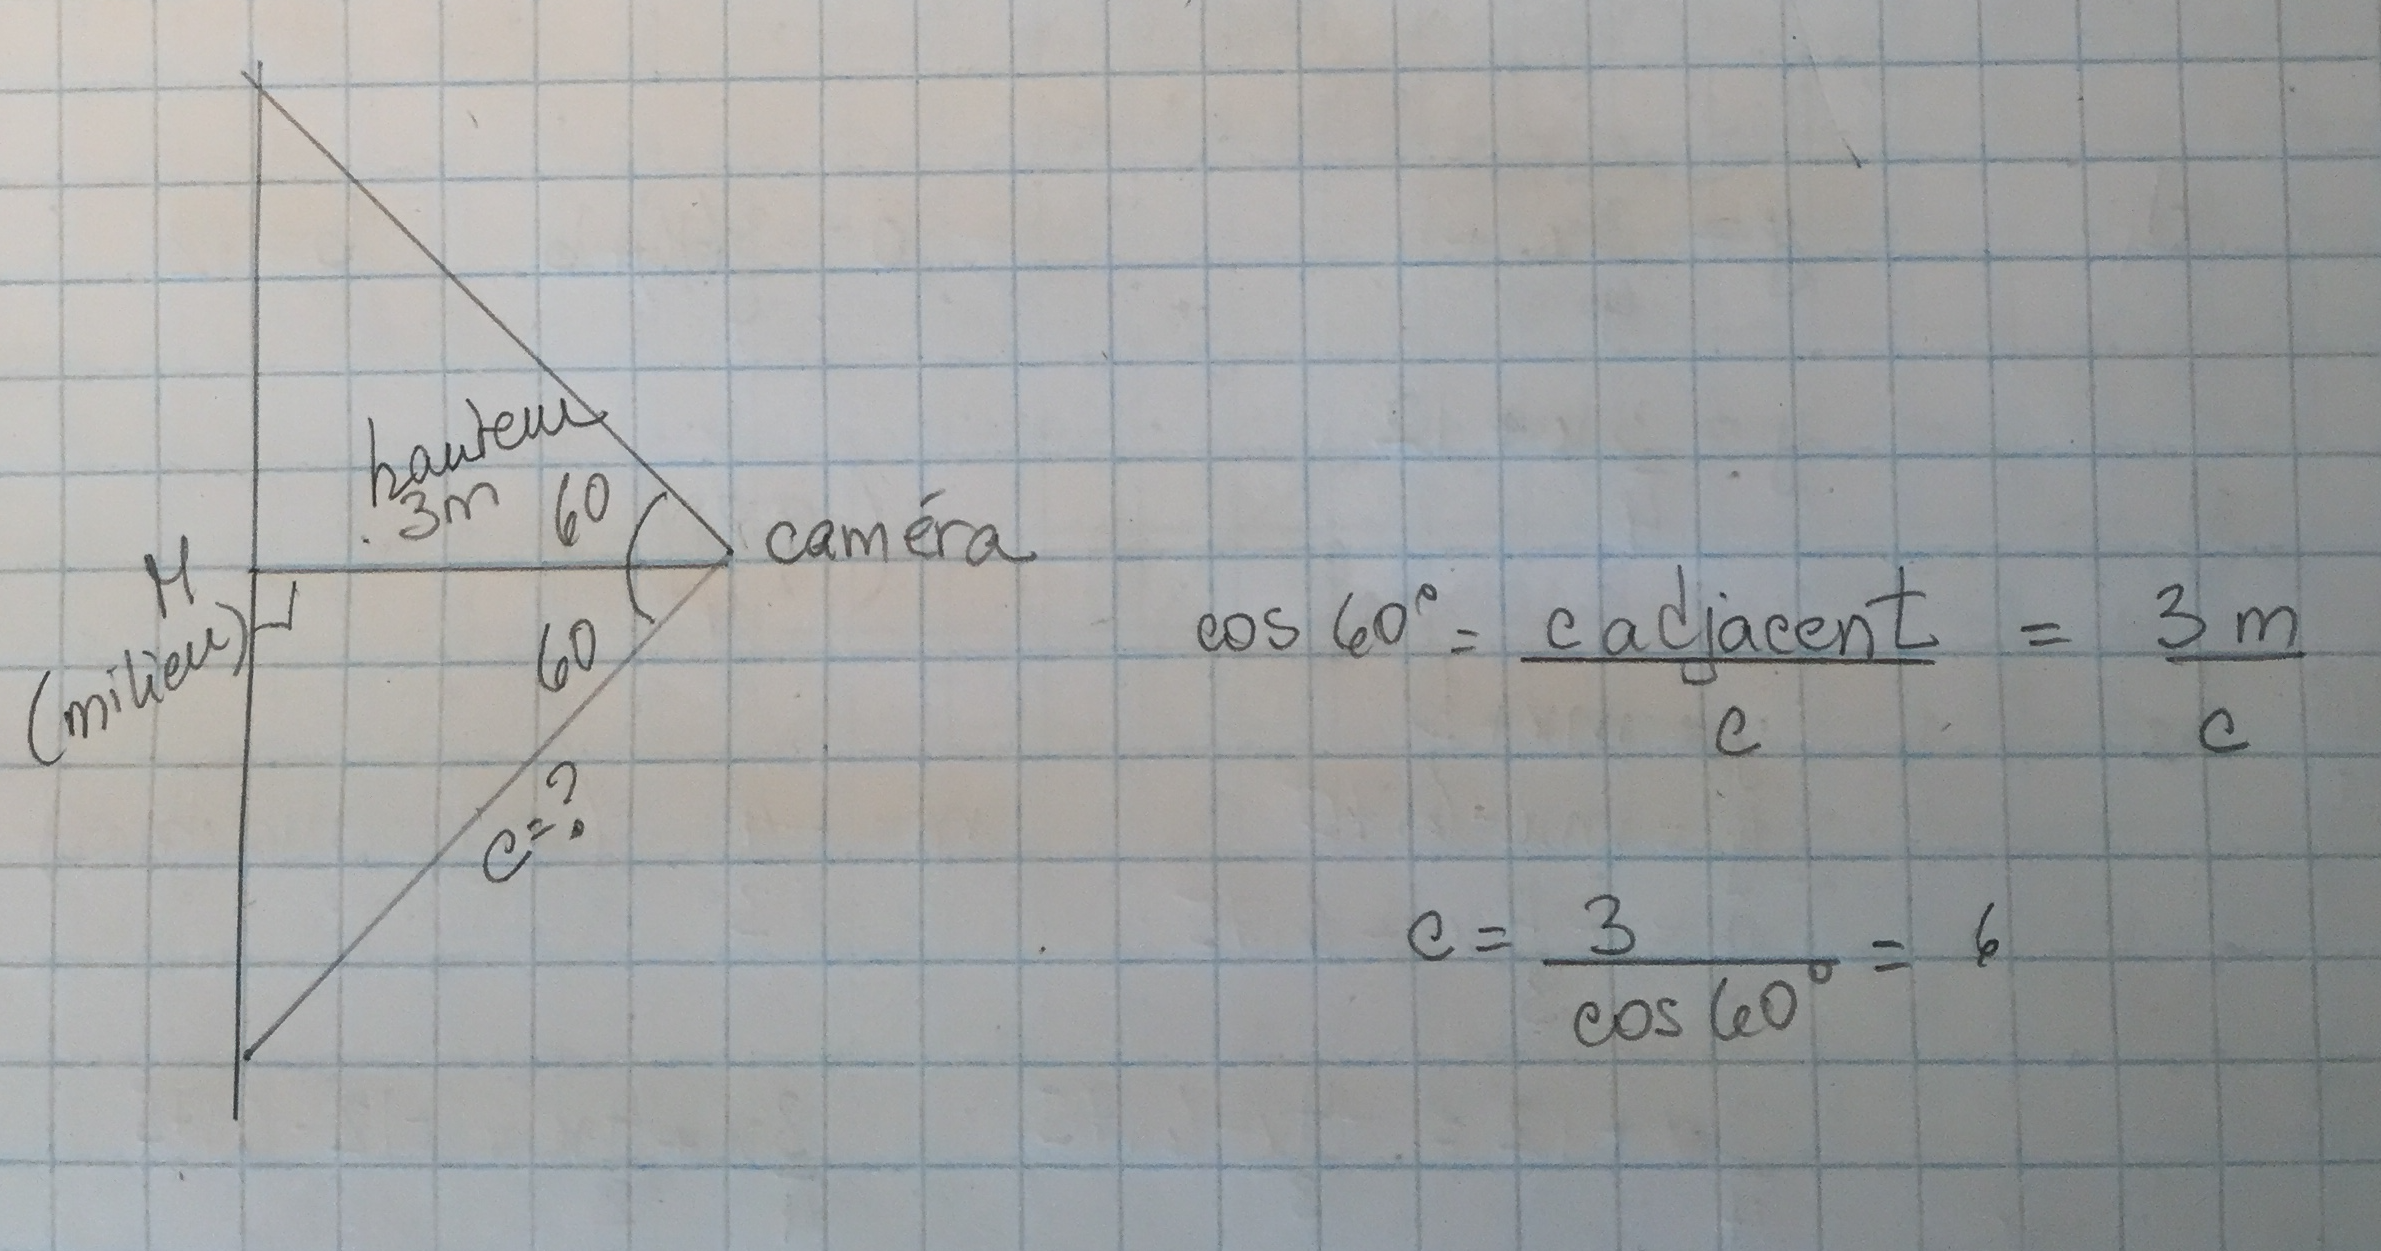 hauteur
3m
60
caméra
M
(milieu)
60
c=?
cos 60° = c adjacent / c = 3 m / c
c = 3 / cos 60° = 6